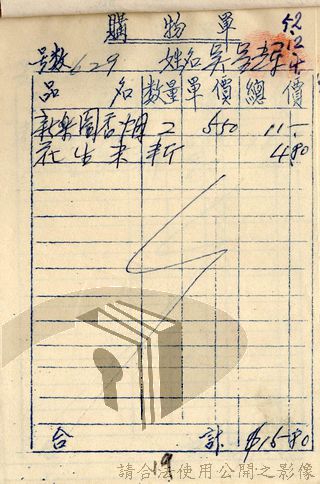 購物單
52.12.4
号数 629 姓名 吳
品名 数量 單價 總價
新樂園香烟 2 550 11.-
花生米 半斤 480
合計 $15.80
19
請合法使用公開之影像